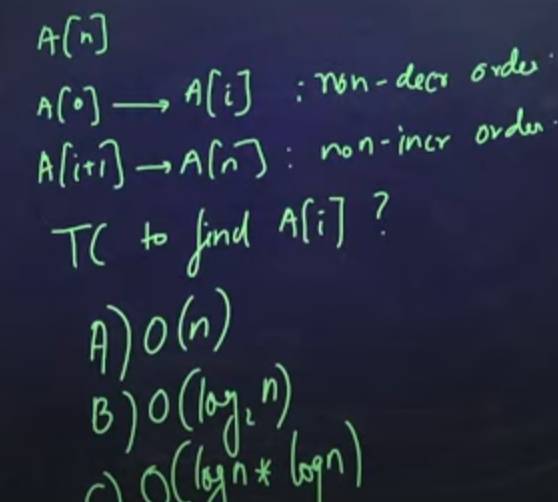 A[n]
A[0] → A[i] : non-decr order.
A[i+1] → A[n] : non-incr order.
TC to find A[i] ?
A) O(n)
B) O(log₂ n)
C) O(logn * logn)